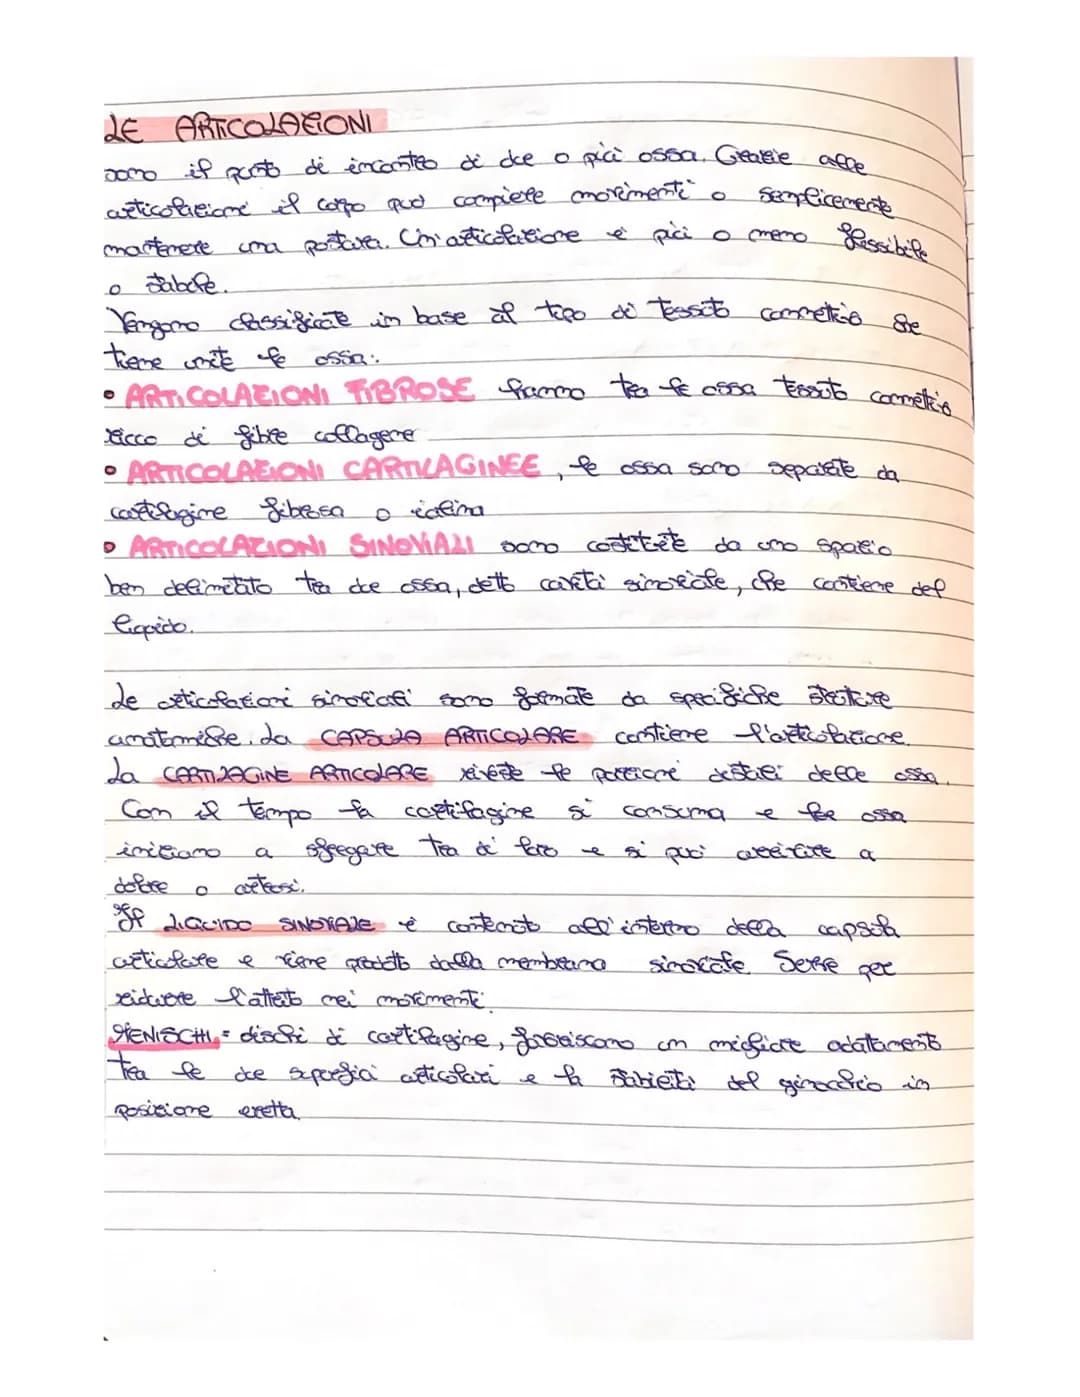 LE ARTICOLAZIONI
sono il punto di incontro di due o più ossa. Grazie alle
articolazioni il corpo può compiere movimenti o semplicemente
mantenere una postura. Un'articolazione è più o meno flessibile
o stabile.
Vengono classificate in base al tipo di tessuto connettivo che
tiene unite le ossa:
• ARTICOLAZIONI FIBROSE hanno tra le ossa tessuto connettivo
ricco di fibre collagene
• ARTICOLAZIONI CARTILAGINEE, le ossa sono separate da
cartilagine fibrosa o ialina
• ARTICOLAZIONI SINOVIALI sono costituite da uno spazio
ben delimitato tra due ossa, detto cavità sinoviale, che contiene del
liquido.
Le articolazioni sinoviali sono formate da specifiche strutture
anatomiche. La CAPSULA ARTICOLARE contiene l'articolazione.
La CARTILAGINE ARTICOLARE riveste le porzioni distali delle ossa.
Con il tempo la cartilagine si consuma e le ossa
iniziano a sfregare tra di loro e si può arrivare a
dolore o artrosi.
Il LIQUIDO SINOVIALE è contenuto all'interno della capsula
articolare e viene prodotto dalla membrana sinoviale. Serve per
ridurre l'attrito nei movimenti.
MENISCHI = dischi di cartilagine, favoriscono un migliore adattamento
tra le due superfici articolari e la stabilità del ginocchio in
posizione eretta.